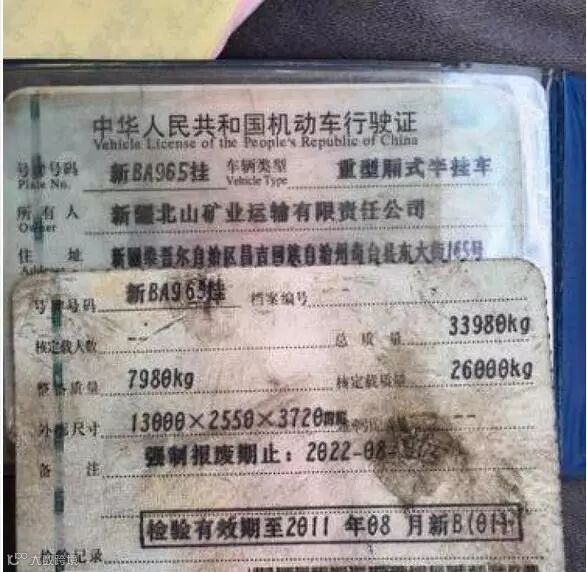 中华人民共和国机动车行驶证
Vehicle License of the People's Republic of China
号牌号码 新BA965挂 车辆类型 重型厢式半挂车
Plate No. Vehicle Type
所有人 新疆北山矿业运输有限责任公司
Owner
住址 新疆维吾尔自治区昌吉回族自治州奇台县东大街165号
Address
号牌号码 新BA965挂 档案编号
核定载人数 -- 总质量 33980kg
整备质量 7980kg 核定载质量 26000kg
外廓尺寸 13000×2550×3720 --
备注 强制报废期止：2022-08-
检验有效期至2011 年08 月新B(01)
记录
大数跨境